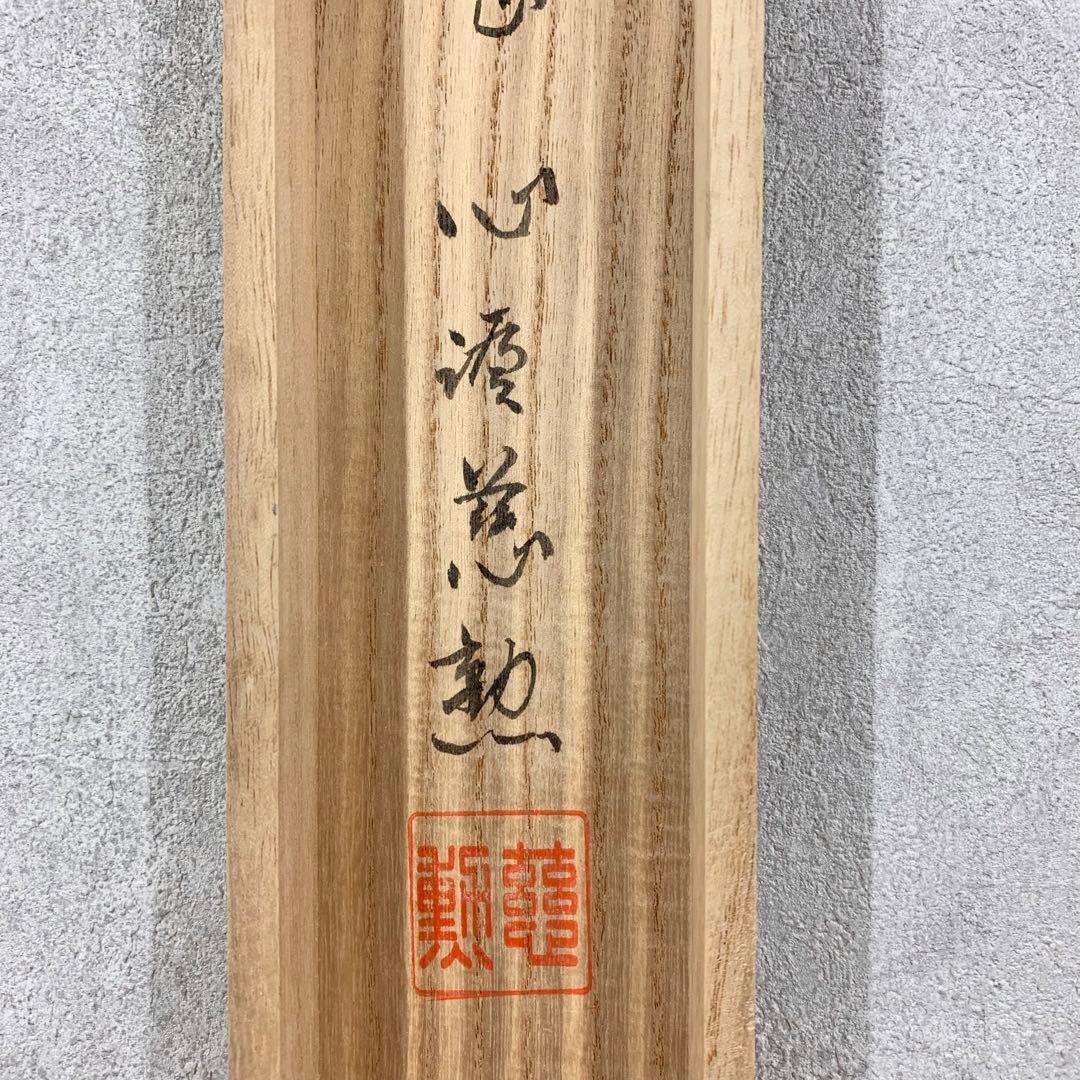 心源慈勲
慈勲